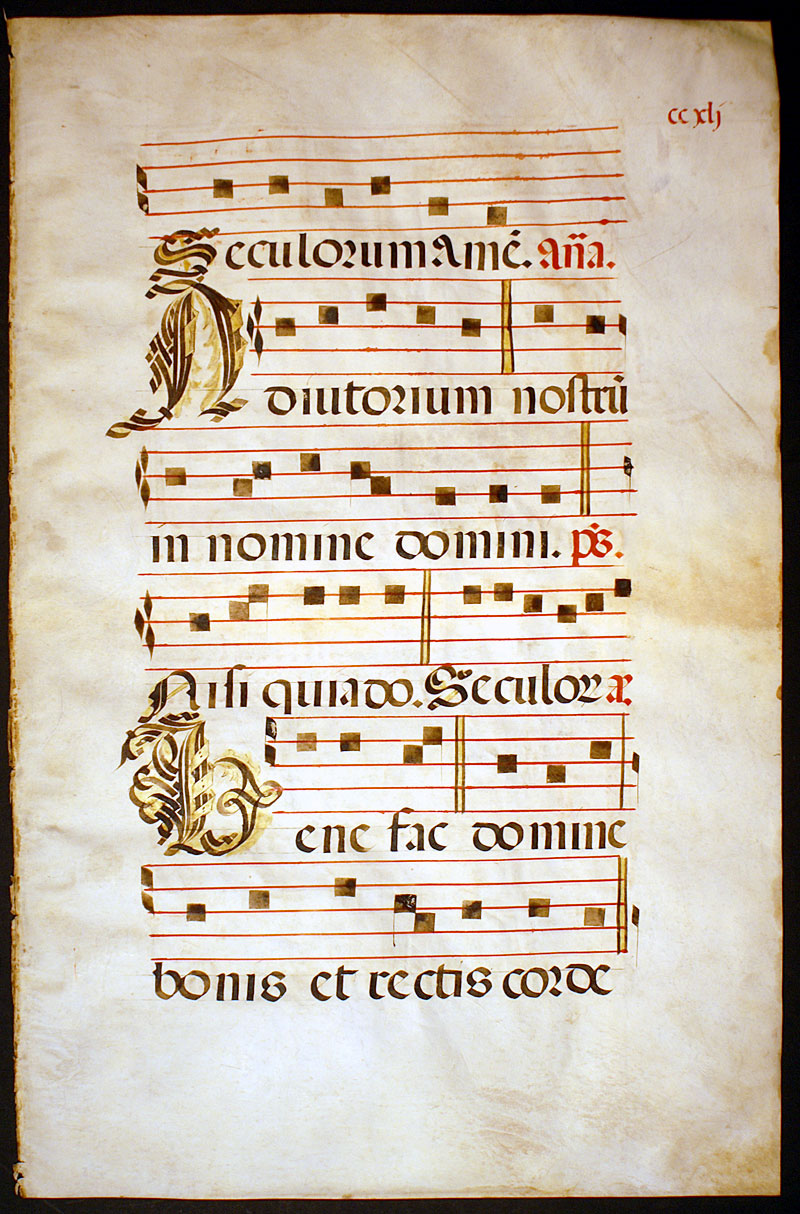 cc xlj
Seculorum amē. añā.
Adiutorium nostrū
in nomine domini. ps̄.
Nisi quia do. Seculoꝝ a.
Bene fac domine
bonis et rectis corde